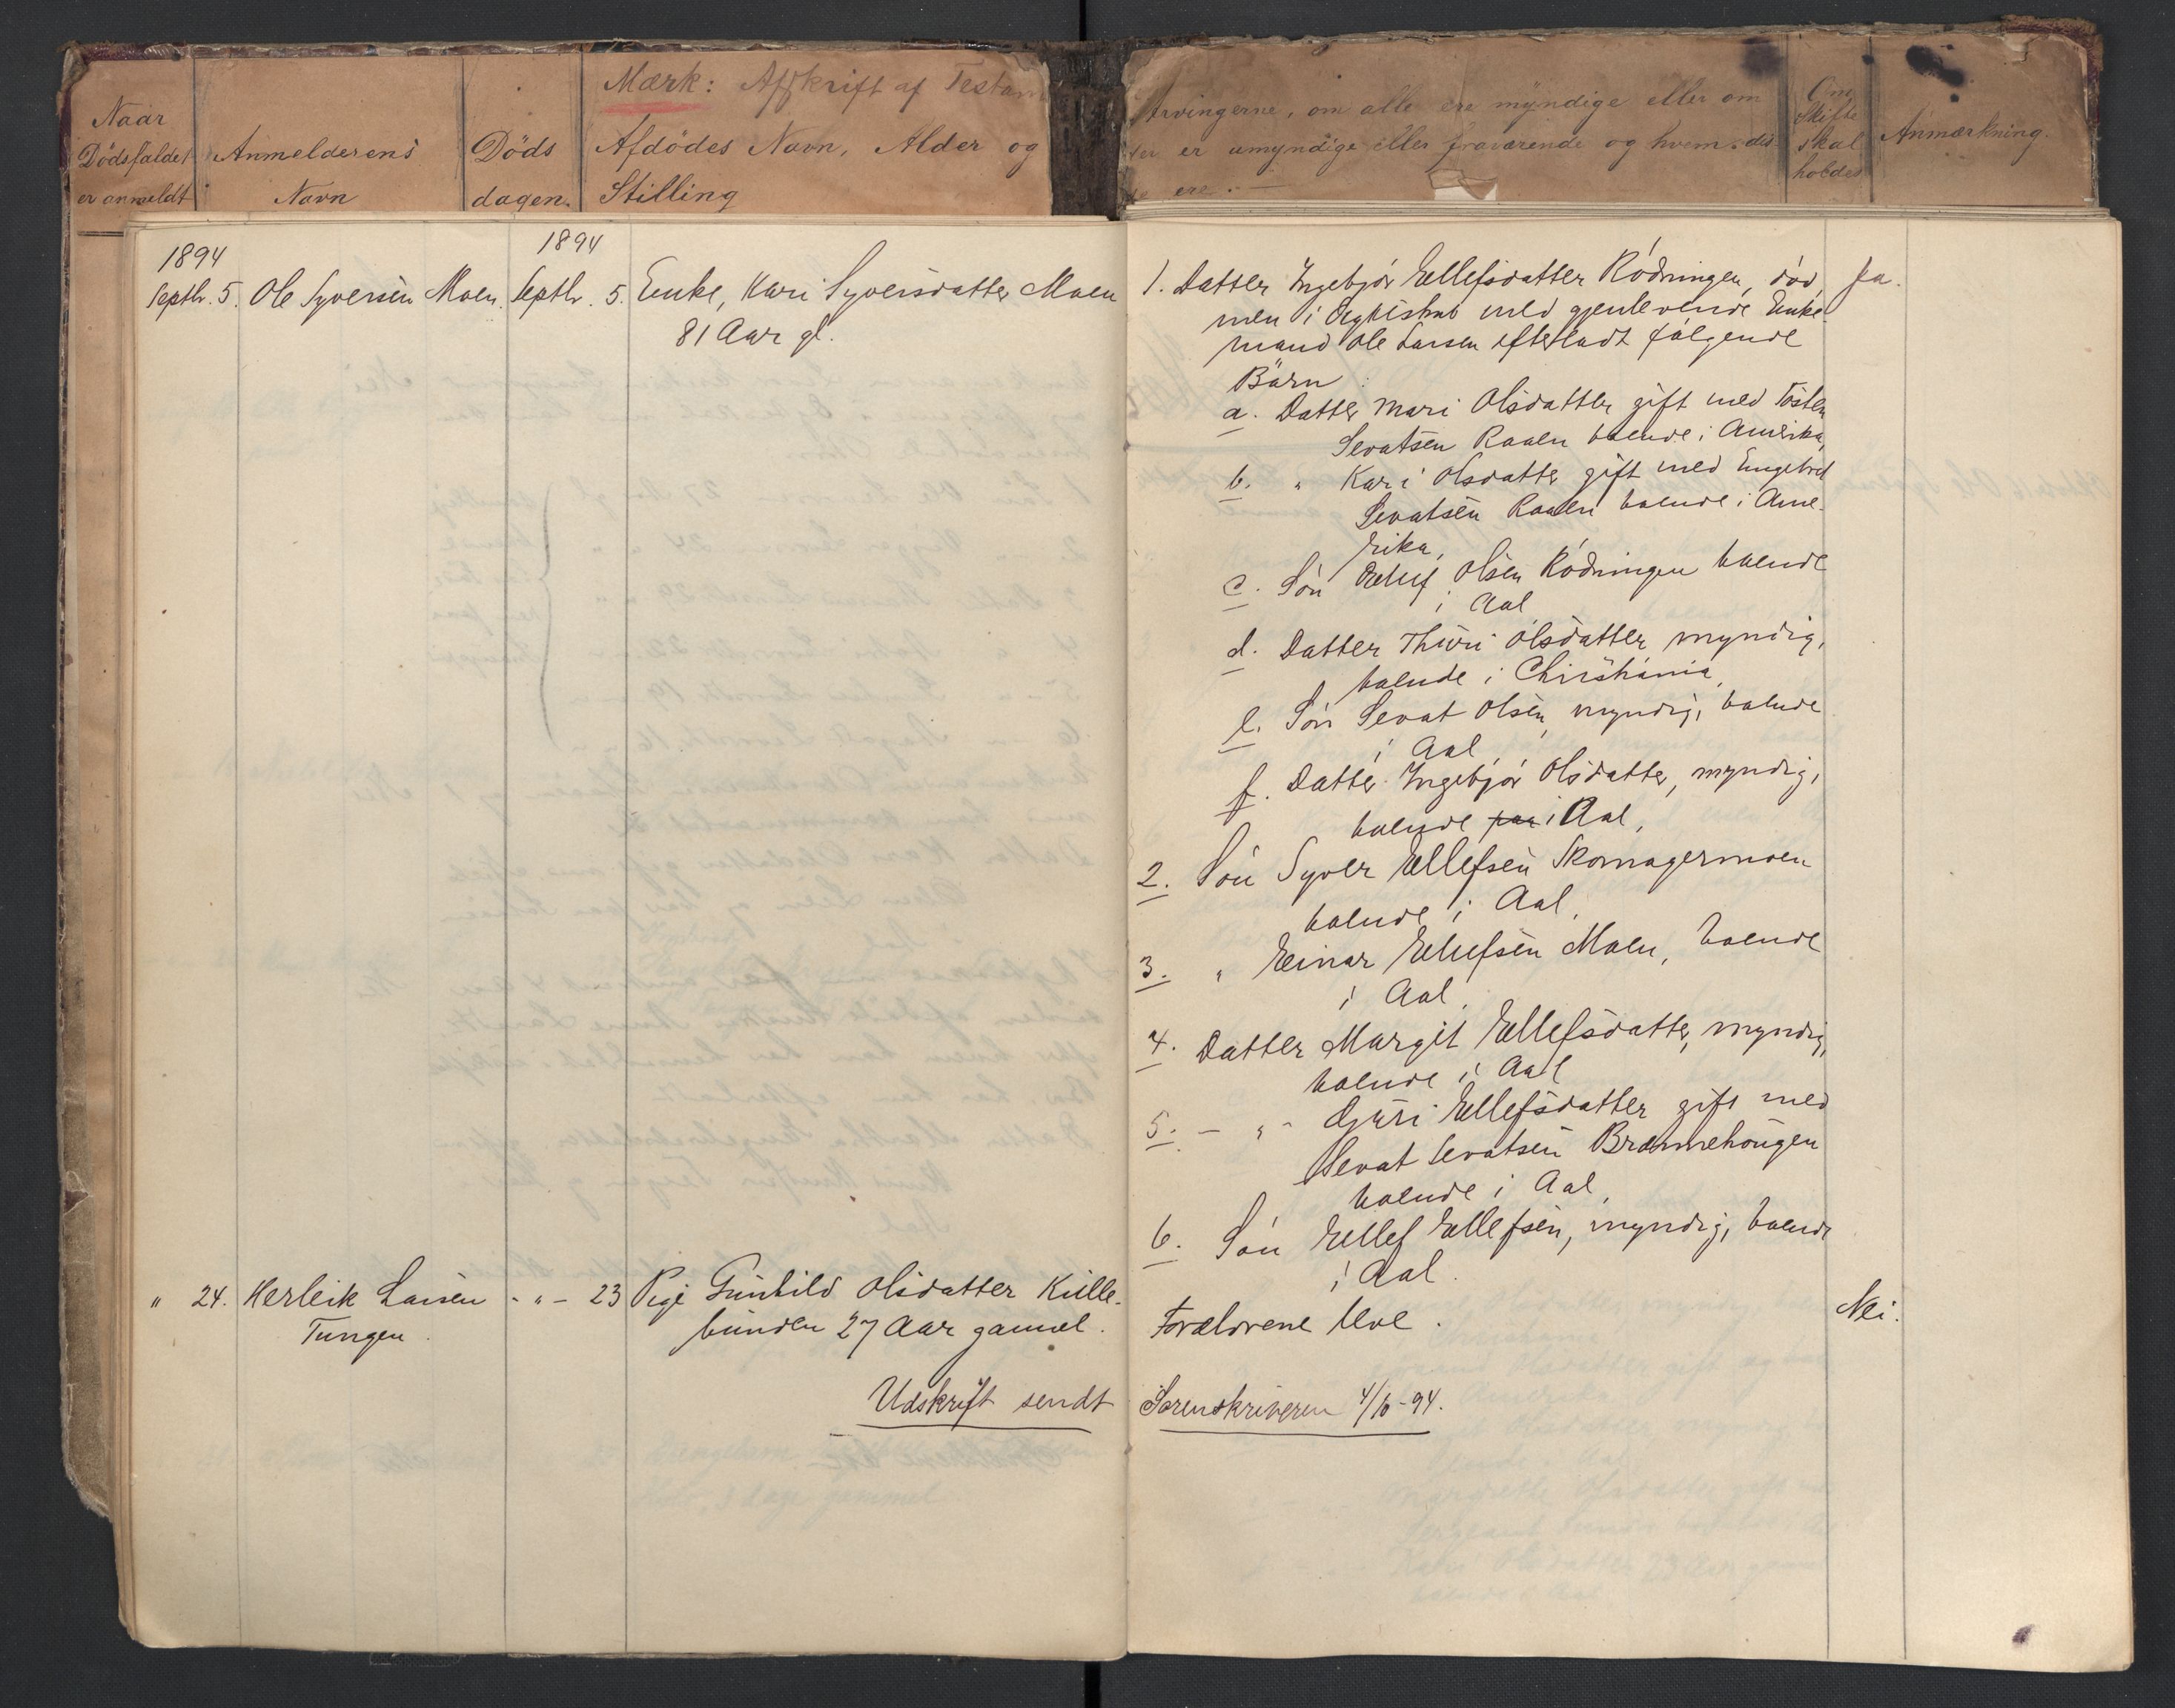 Mærk: Afskrift af Testam
Naar
Dødsfaldet
er anmeldt
Anmelderens
Navn
Döds
dagen.
Afdödes Navn, Alder og
Stilling
Arvingerne, om alle ere myndige eller om
er umyndige eller fraværende og hvem
ere.
Om
Skifte
skal
holdes
Anmærkning.
1894
1894
Septbr. 5. Ole Syversen Moen. Septbr. 5. Enke, Kari Syversdatter Moen
81 Aar gl.
1. Datter Ingebjör Ellefsdatter Rödningen, död, Ja.
men i Ægteskab med gjenlevende Enke-
mand Ole Larsen efterladt fölgende
Börn :
a. Datter Mari Olsdatter gift med Tosten
Sevatsen Raaen boende i Amerika,
b. " Kari Olsdatter gift med Engebret
Sevatsen Raaen boende i Ame-
rika,
c. Sön Ellef Olsen Rödningen boende
i Aal
d. Datter Thuri Olsdatter myndig,
boende i Christiania,
e. Sön Sevat Olsen, myndig, boende
i Aal
f. Datter Ingebjör Olsdatter, myndig,
boende paa i Aal,
2. Sön Syver Ellefsen Skomagermoen
boende i Aal,
3. " Einar Ellefsen Moen, boende
i Aal,
4. Datter Margit Ellefsdatter, myndig,
boende i Aal
5. - " - Gjuri Ellefsdatter gift med
Sevat Sevatsen Brænnehougen
boende i Aal,
6. Sön Ellef Ellefsen, myndig, boende
i Aal.
" 24. Herleik Larsen - " - 23 Pige Gunhild Olsdatter Kulle-
Tungen.
bunden 27 Aar gammel.
Forældrene leve.
Nei.
Udskrift sendt Sorenskriveren 4/10-94.